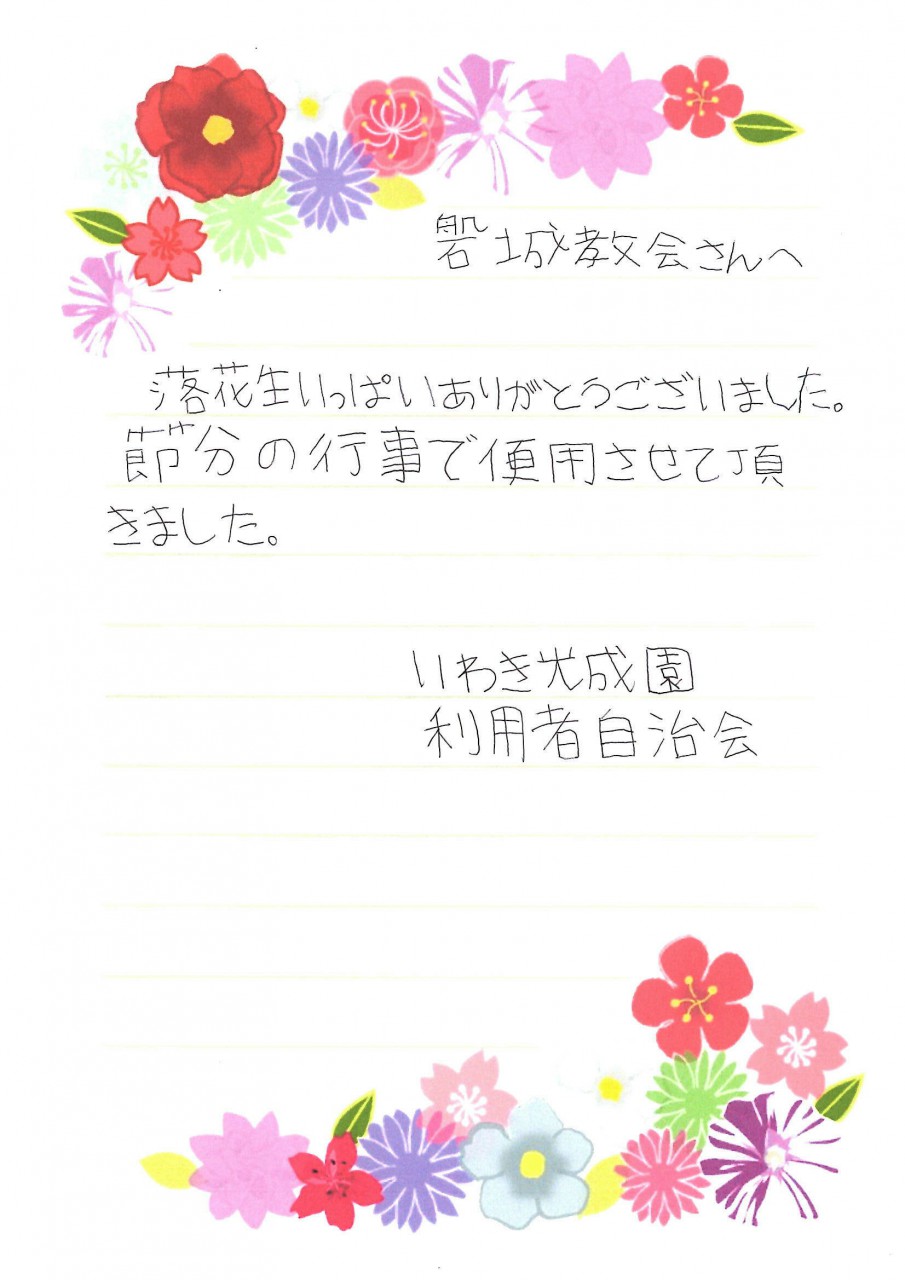 磐城教会さんへ
落花生いっぱいありがとうございました。
節分の行事で使用させて頂
きました。
いわき光成園
利用者自治会